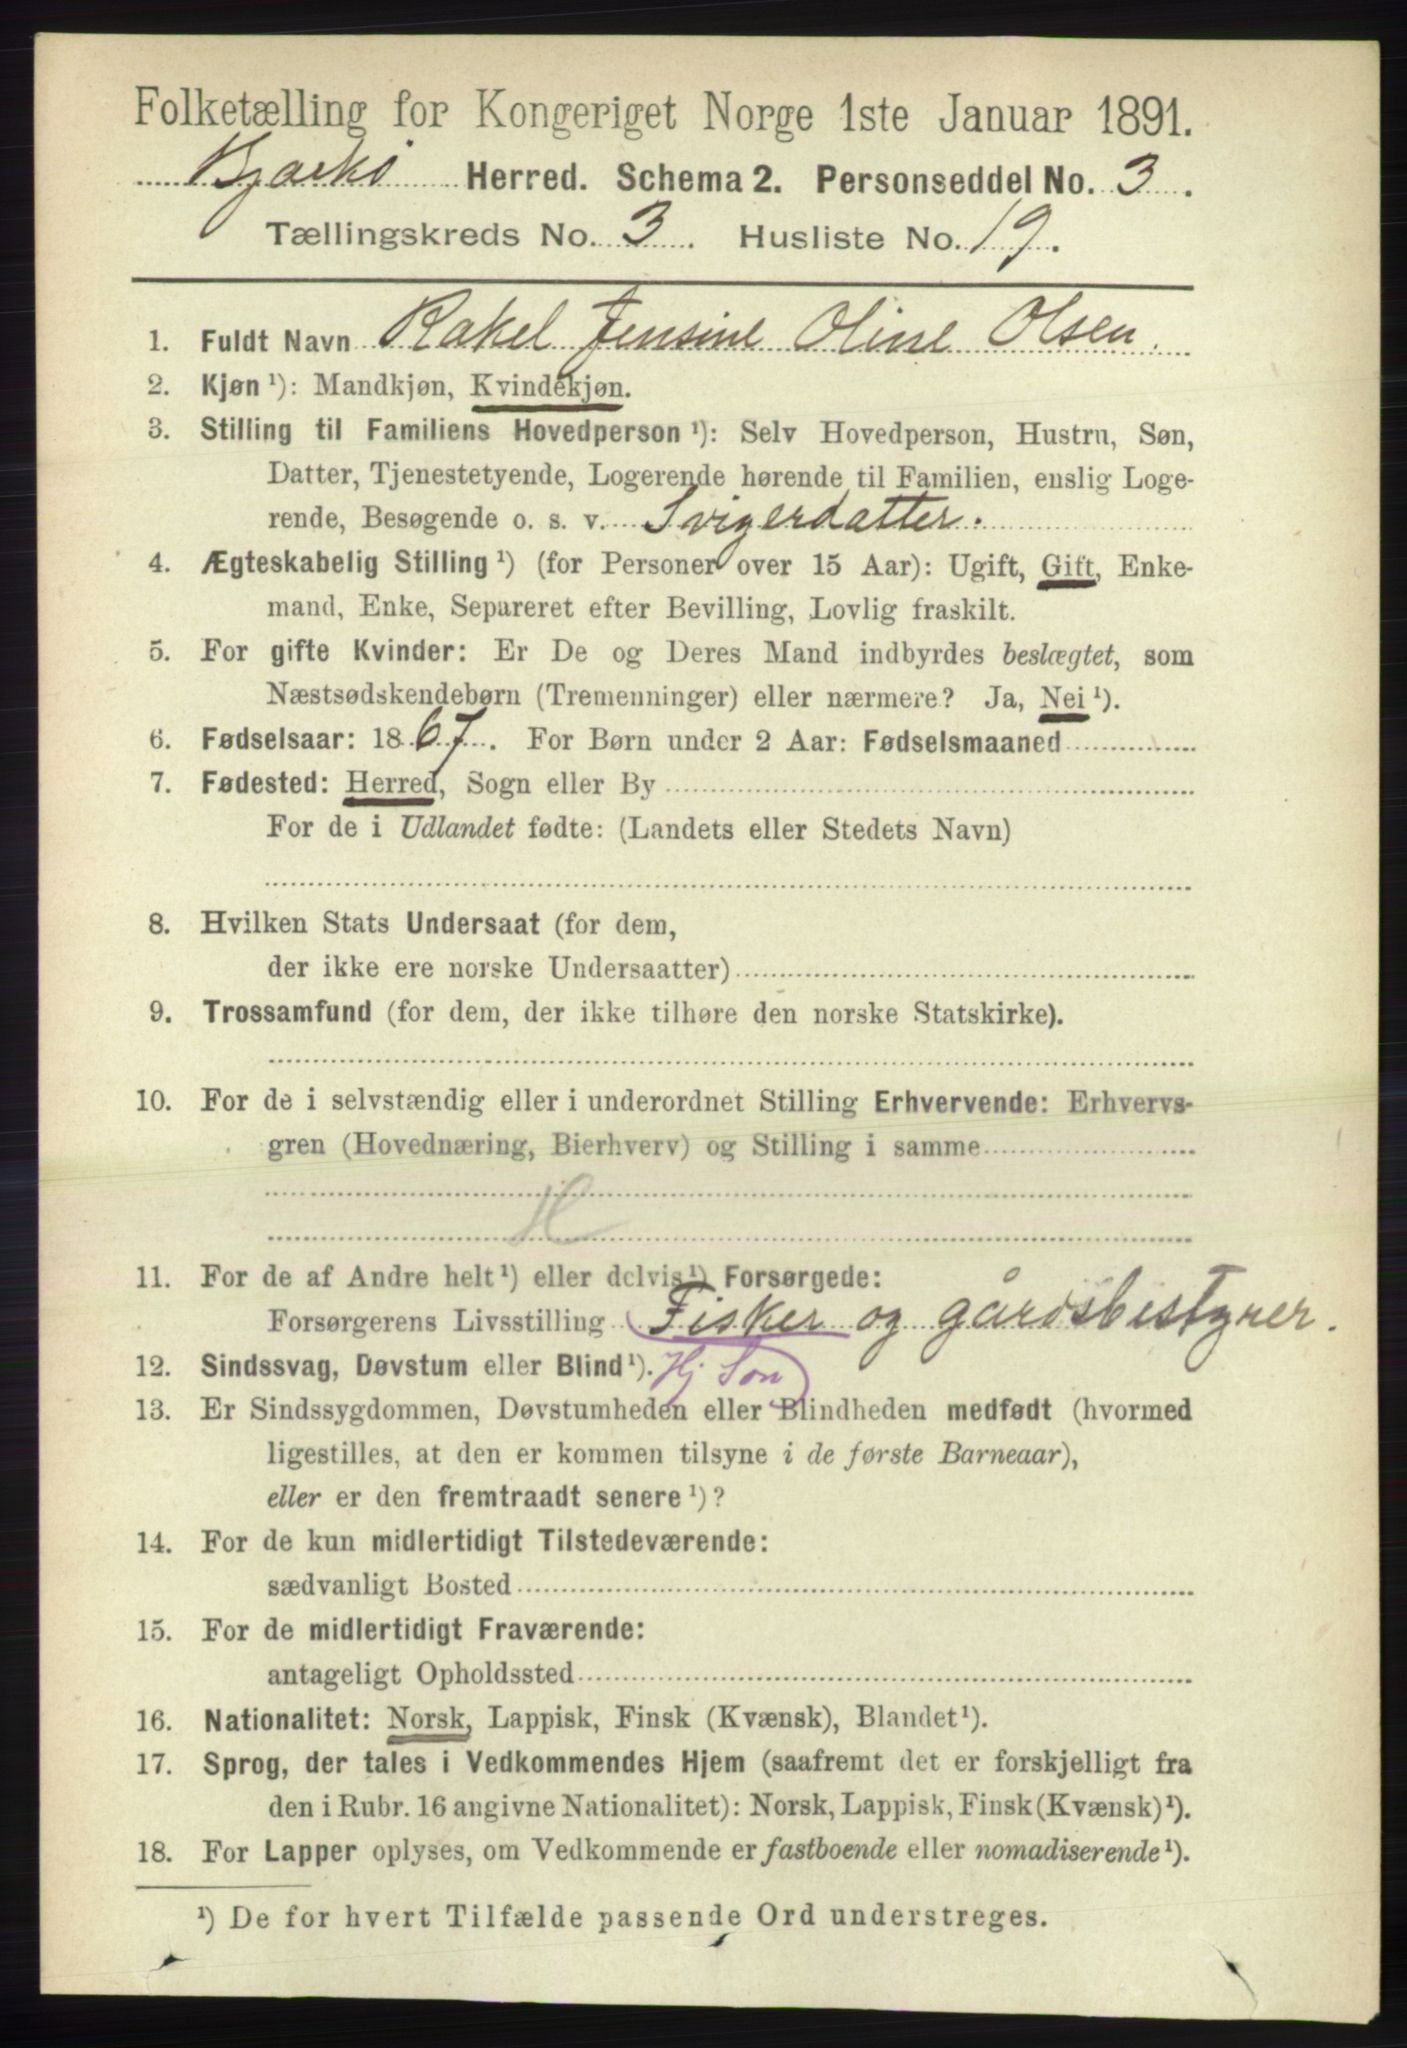 Folketælling for Kongeriget Norge 1ste Januar 1891.
Bjarkø Herred. Schema 2. Personseddel No. 3.
Tællingskreds No. 3. Husliste No. 19.
1. Fuldt Navn Rakel Jensine Oline Olsen.
2. Kjøn ¹): Mandkjøn, Kvindekjøn.
3. Stilling til Familiens Hovedperson ¹): Selv Hovedperson, Hustru, Søn,
Datter, Tjenestetyende, Logerende hørende til Familien, enslig Loge-
rende, Besøgende o. s. v. Svigerdatter.
4. Ægteskabelig Stilling ¹) (for Personer over 15 Aar): Ugift, Gift, Enke-
mand, Enke, Separeret efter Bevilling, Lovlig fraskilt.
5. For gifte Kvinder: Er De og Deres Mand indbyrdes beslægtet, som
Næstsødskendebørn (Tremenninger) eller nærmere? Ja, Nei ¹).
6. Fødselsaar: 1867. For Børn under 2 Aar: Fødselsmaaned
7. Fødested: Herred, Sogn eller By
For de i Udlandet fødte: (Landets eller Stedets Navn)
8. Hvilken Stats Undersaat (for dem,
der ikke ere norske Undersaatter)
9. Trossamfund (for dem, der ikke tilhøre den norske Statskirke).
10. For de i selvstændig eller i underordnet Stilling Erhvervende: Erhvervs-
gren (Hovednæring, Bierhverv) og Stilling i samme
H
11. For de af Andre helt ¹) eller delvis ¹) Forsørgede:
Forsørgerens Livsstilling Fisker og gårdsbestyrer.
12. Sindssvag, Døvstum eller Blind ¹). Hj Søn
13. Er Sindssygdommen, Døvstumheden eller Blindheden medfødt (hvormed
ligestilles, at den er kommen tilsyne i de første Barneaar),
eller er den fremtraadt senere ¹)?
14. For de kun midlertidigt Tilstedeværende:
sædvanligt Bosted
15. For de midlertidigt Fraværende:
antageligt Opholdssted
16. Nationalitet: Norsk, Lappisk, Finsk (Kvænsk), Blandet ¹).
17. Sprog, der tales i Vedkommendes Hjem (saafremt det er forskjelligt fra
den i Rubr. 16 angivne Nationalitet): Norsk, Lappisk, Finsk (Kvænsk) ¹).
18. For Lapper oplyses, om Vedkommende er fastboende eller nomadiserende ¹).
¹) De for hvert Tilfælde passende Ord understreges.